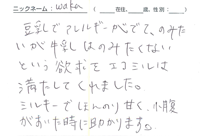 ニックネーム: waka (　在住、　歳、性別:　)
豆乳でアレルギーがでて、のみた
いが牛乳はのみたくない
という欲求をエコミルは
満たしてくれました。
ミルキーでほんのり甘く、小腹
がすいた時に助かります。